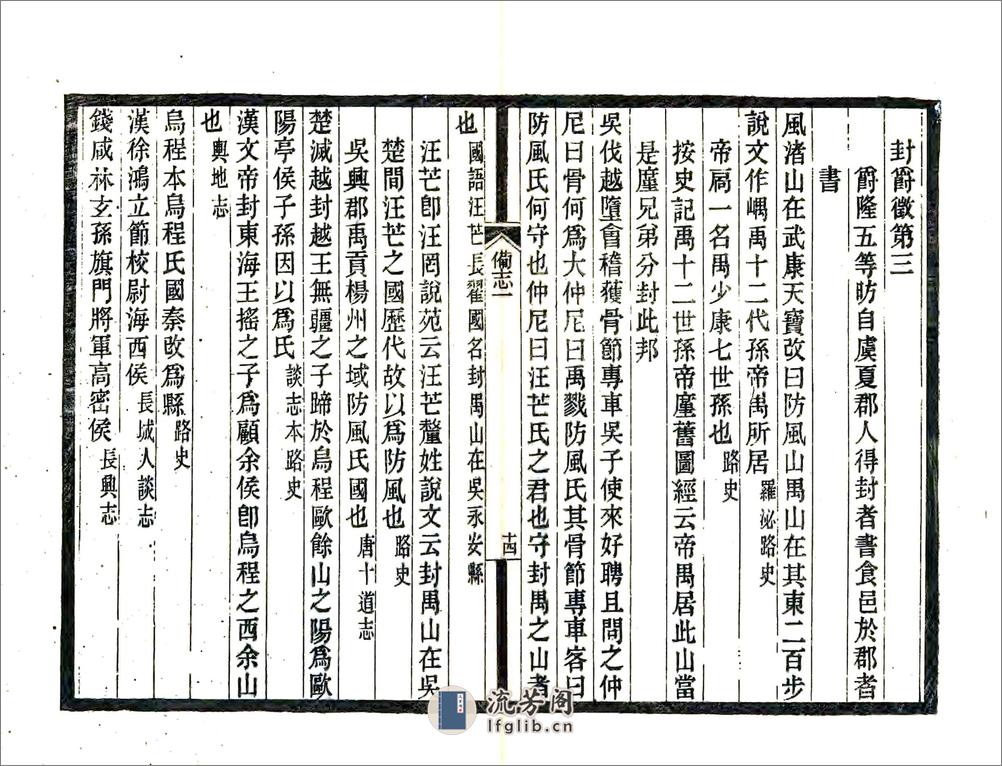 封爵徵第三
爵隆五等昉自虞夏郡人得封者書食邑於郡者
書
風渚山在武康天寶改曰防風山禺山在其東二百步
說文作嵎禹十二代孫帝禺所居羅泌路史
帝扃一名禺少康七世孫也路史
按史記禹十二世孫帝廑舊圖經云帝禺居此山當
是廑兄弟分封此邦
吳伐越墮會稽獲骨節專車吳子使來好聘且問之仲
尼曰骨何為大仲尼曰禹戮防風氏其骨節專車客曰
防風氏何守也仲尼曰汪芒氏之君也守封禺之山者
備志一
十四
也國語汪芒長翟國名封禺山在吳永安縣
汪芒卽汪罔說苑云汪芒釐姓說文云封禺山在吳
楚間汪芒之國歷代故以為防風也路史
吳興郡禹貢楊州之域防風氏國也唐十道志
楚滅越封越王無疆之子蹄於烏程歐餘山之陽為歐
陽亭侯子孫因以為氏談志本路史
漢文帝封東海王搖之子為顧余侯卽烏程之西余山
也輿地志
烏程本烏程氏國秦改為縣路史
漢徐鴻立節校尉海西侯長城人談志
錢咸林玄孫旗門將軍高密侯長興志
流芳阁
lfglib.cn